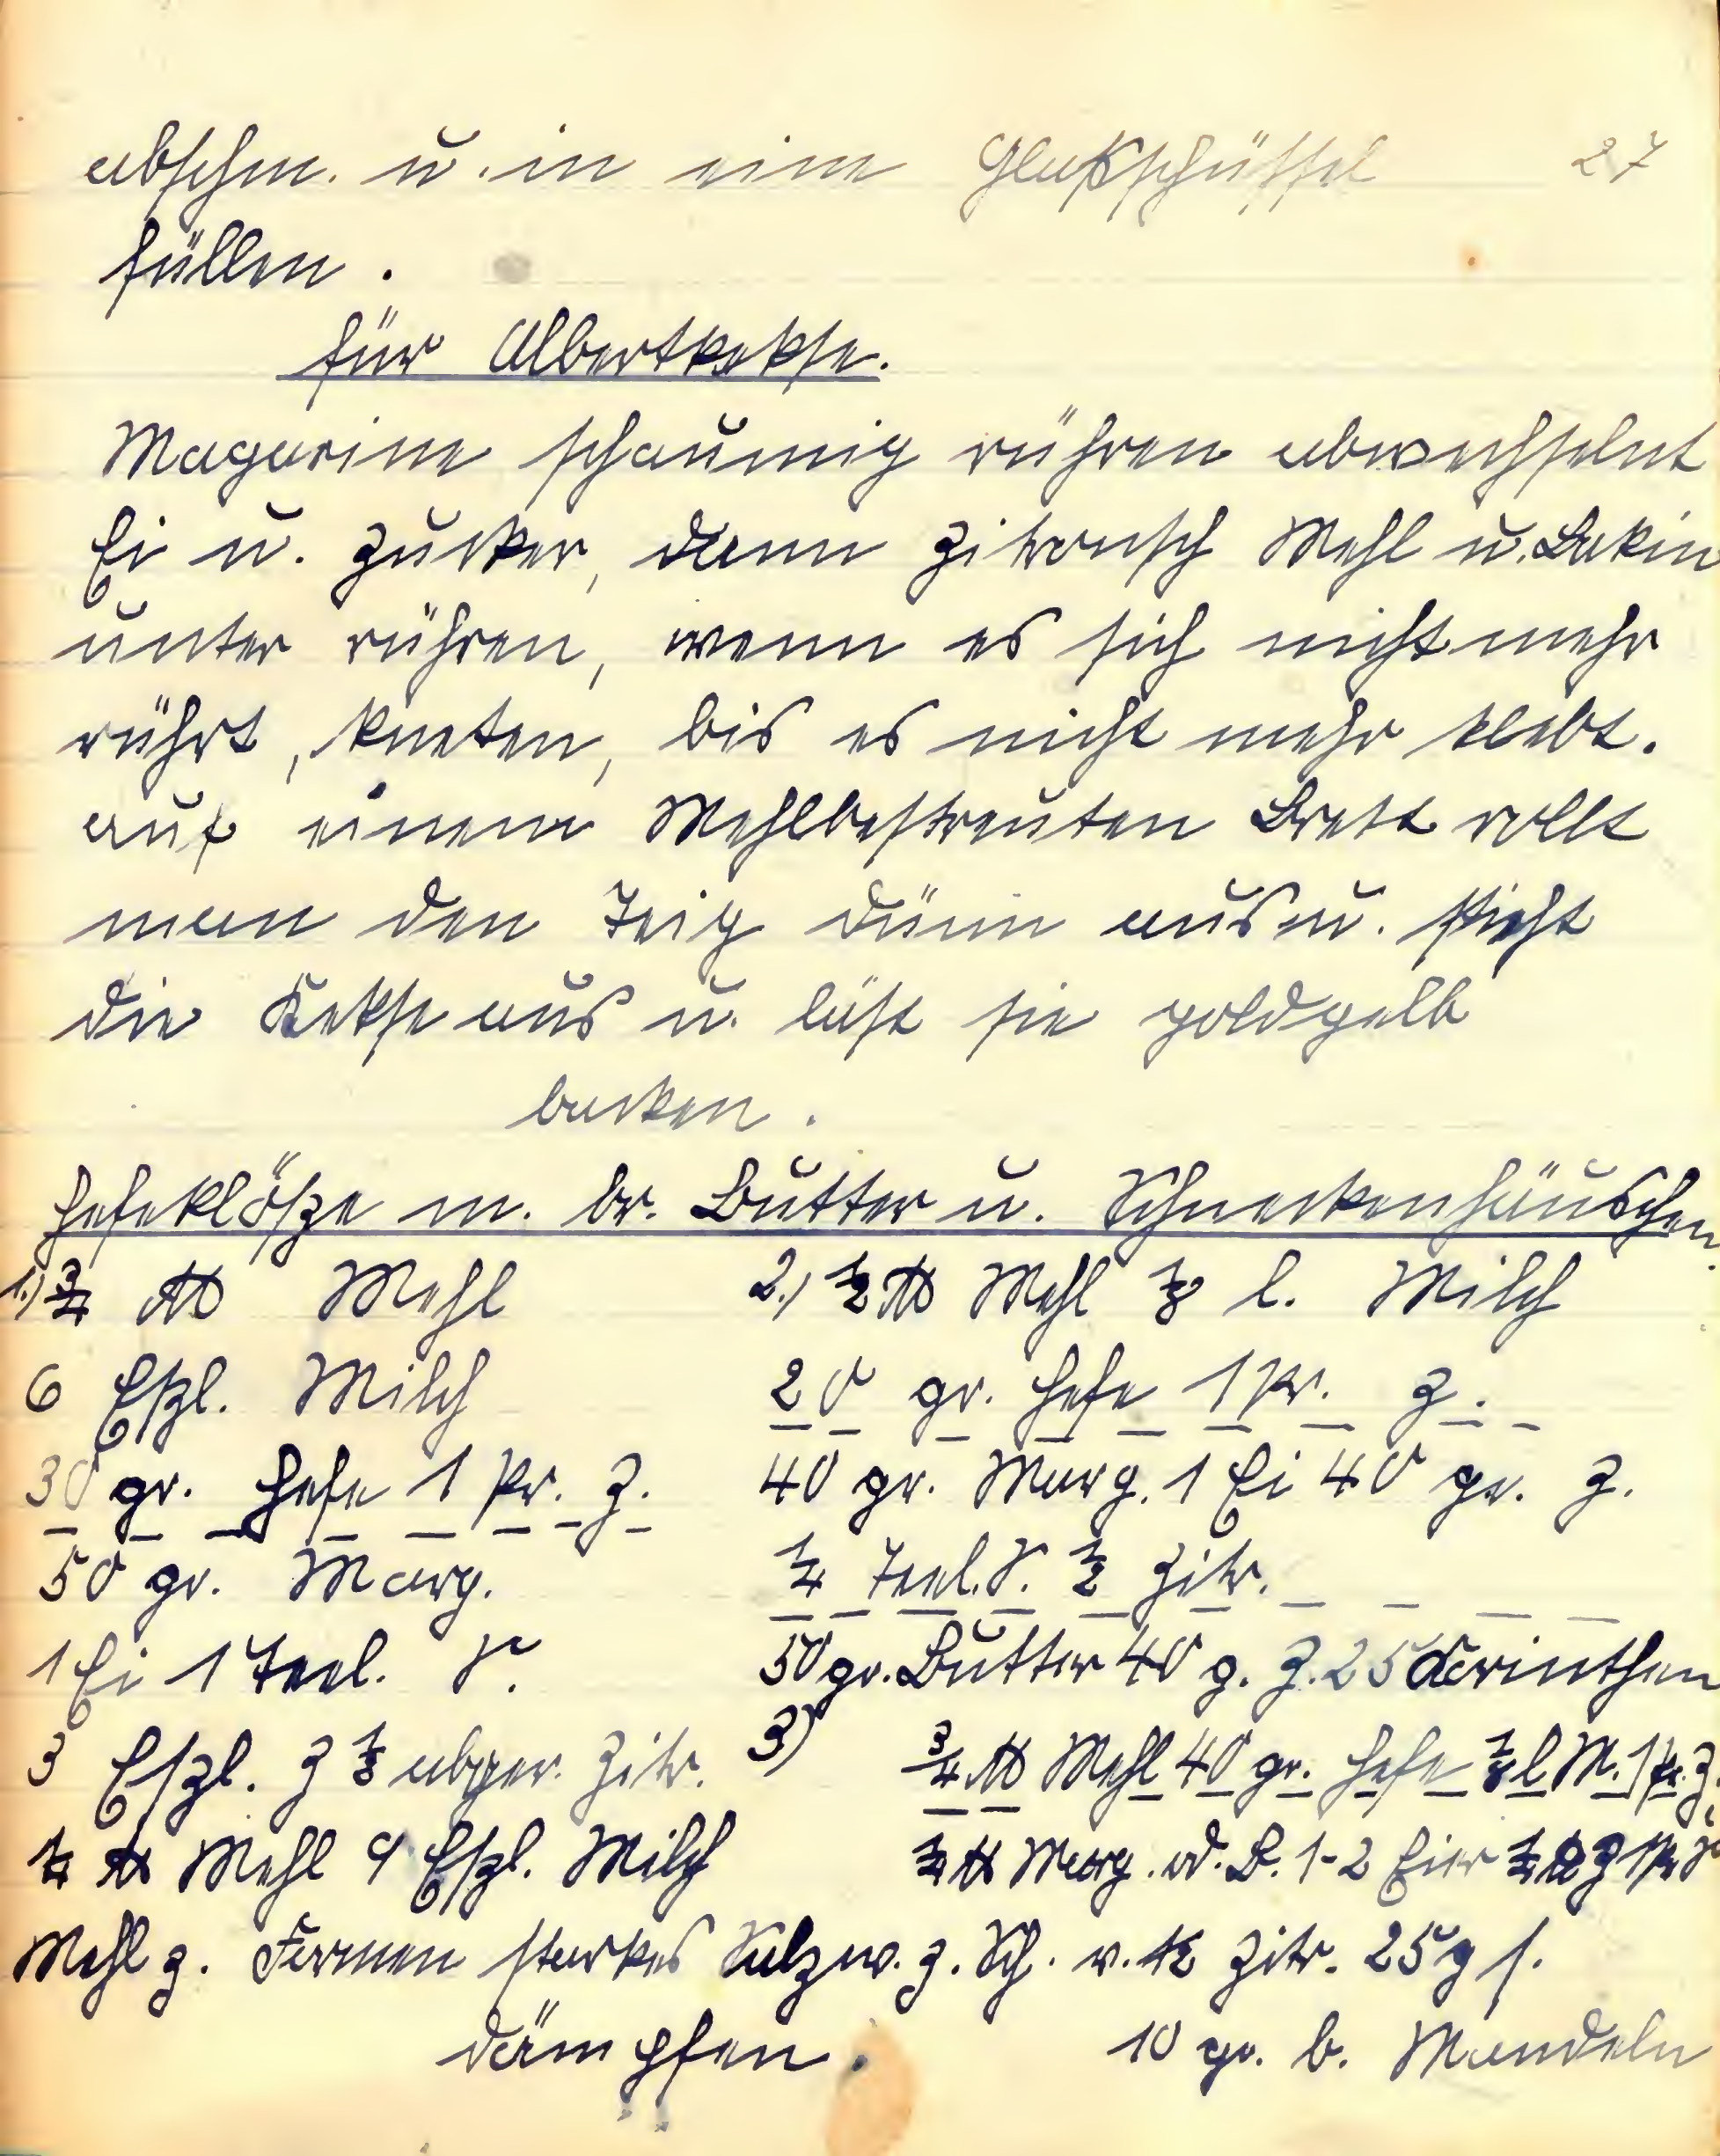 abschm. u. in eine Glasschüssel 27
füllen.
für Albertkekse.
Magarine schaumig rühren abwechselnt
Ei u. Zucker, dann Zitronsch Mehl u. Bakin
unter rühren, wenn es sich nicht mehr
rührt, kneten, bis es nicht mehr klebt.
auf einem Mehlbestreuten Brett rollt
man den Teig dünn aus u. sticht
die Kekse aus u. läst sie goldgelb
backen.
Hefeklöße m. br. Butter u. Schneckenhäuschen.
1.) 3/4 ℔ Mehl
6 Eßl. Milch
30 gr. Hefe 1 Pr. Z.
50 gr. Marg.
1 Ei 1 Teel. S.
3 Eßl. Z 1/2 abger. Zitr.
1/4 ℔ Mehl 9 Eßl. Milch
Mehl z. Formen starkes Salzw. z.
dämpfen.
2.) 1/2 ℔ Mehl 1/8 l. Milch
20 gr. Hefe 1 Pr. Z.
40 gr. Marg. 1 Ei 40 gr. Z.
1/4 Teel. S. 1/2 Zitr.
50 gr. Butter 40 g. Z. 25 Korinthen
3) 3/4 ℔ Mehl 40 gr. Hefe 1/8 l M. 1 Pr. Z.
1/4 ℔ Marg. od. B. 1-2 Eier 1/4 ℔ Z 1 Pr S
Sch. v. 1/2 Zitr. 25 g s.
10 gr. b. Mandeln